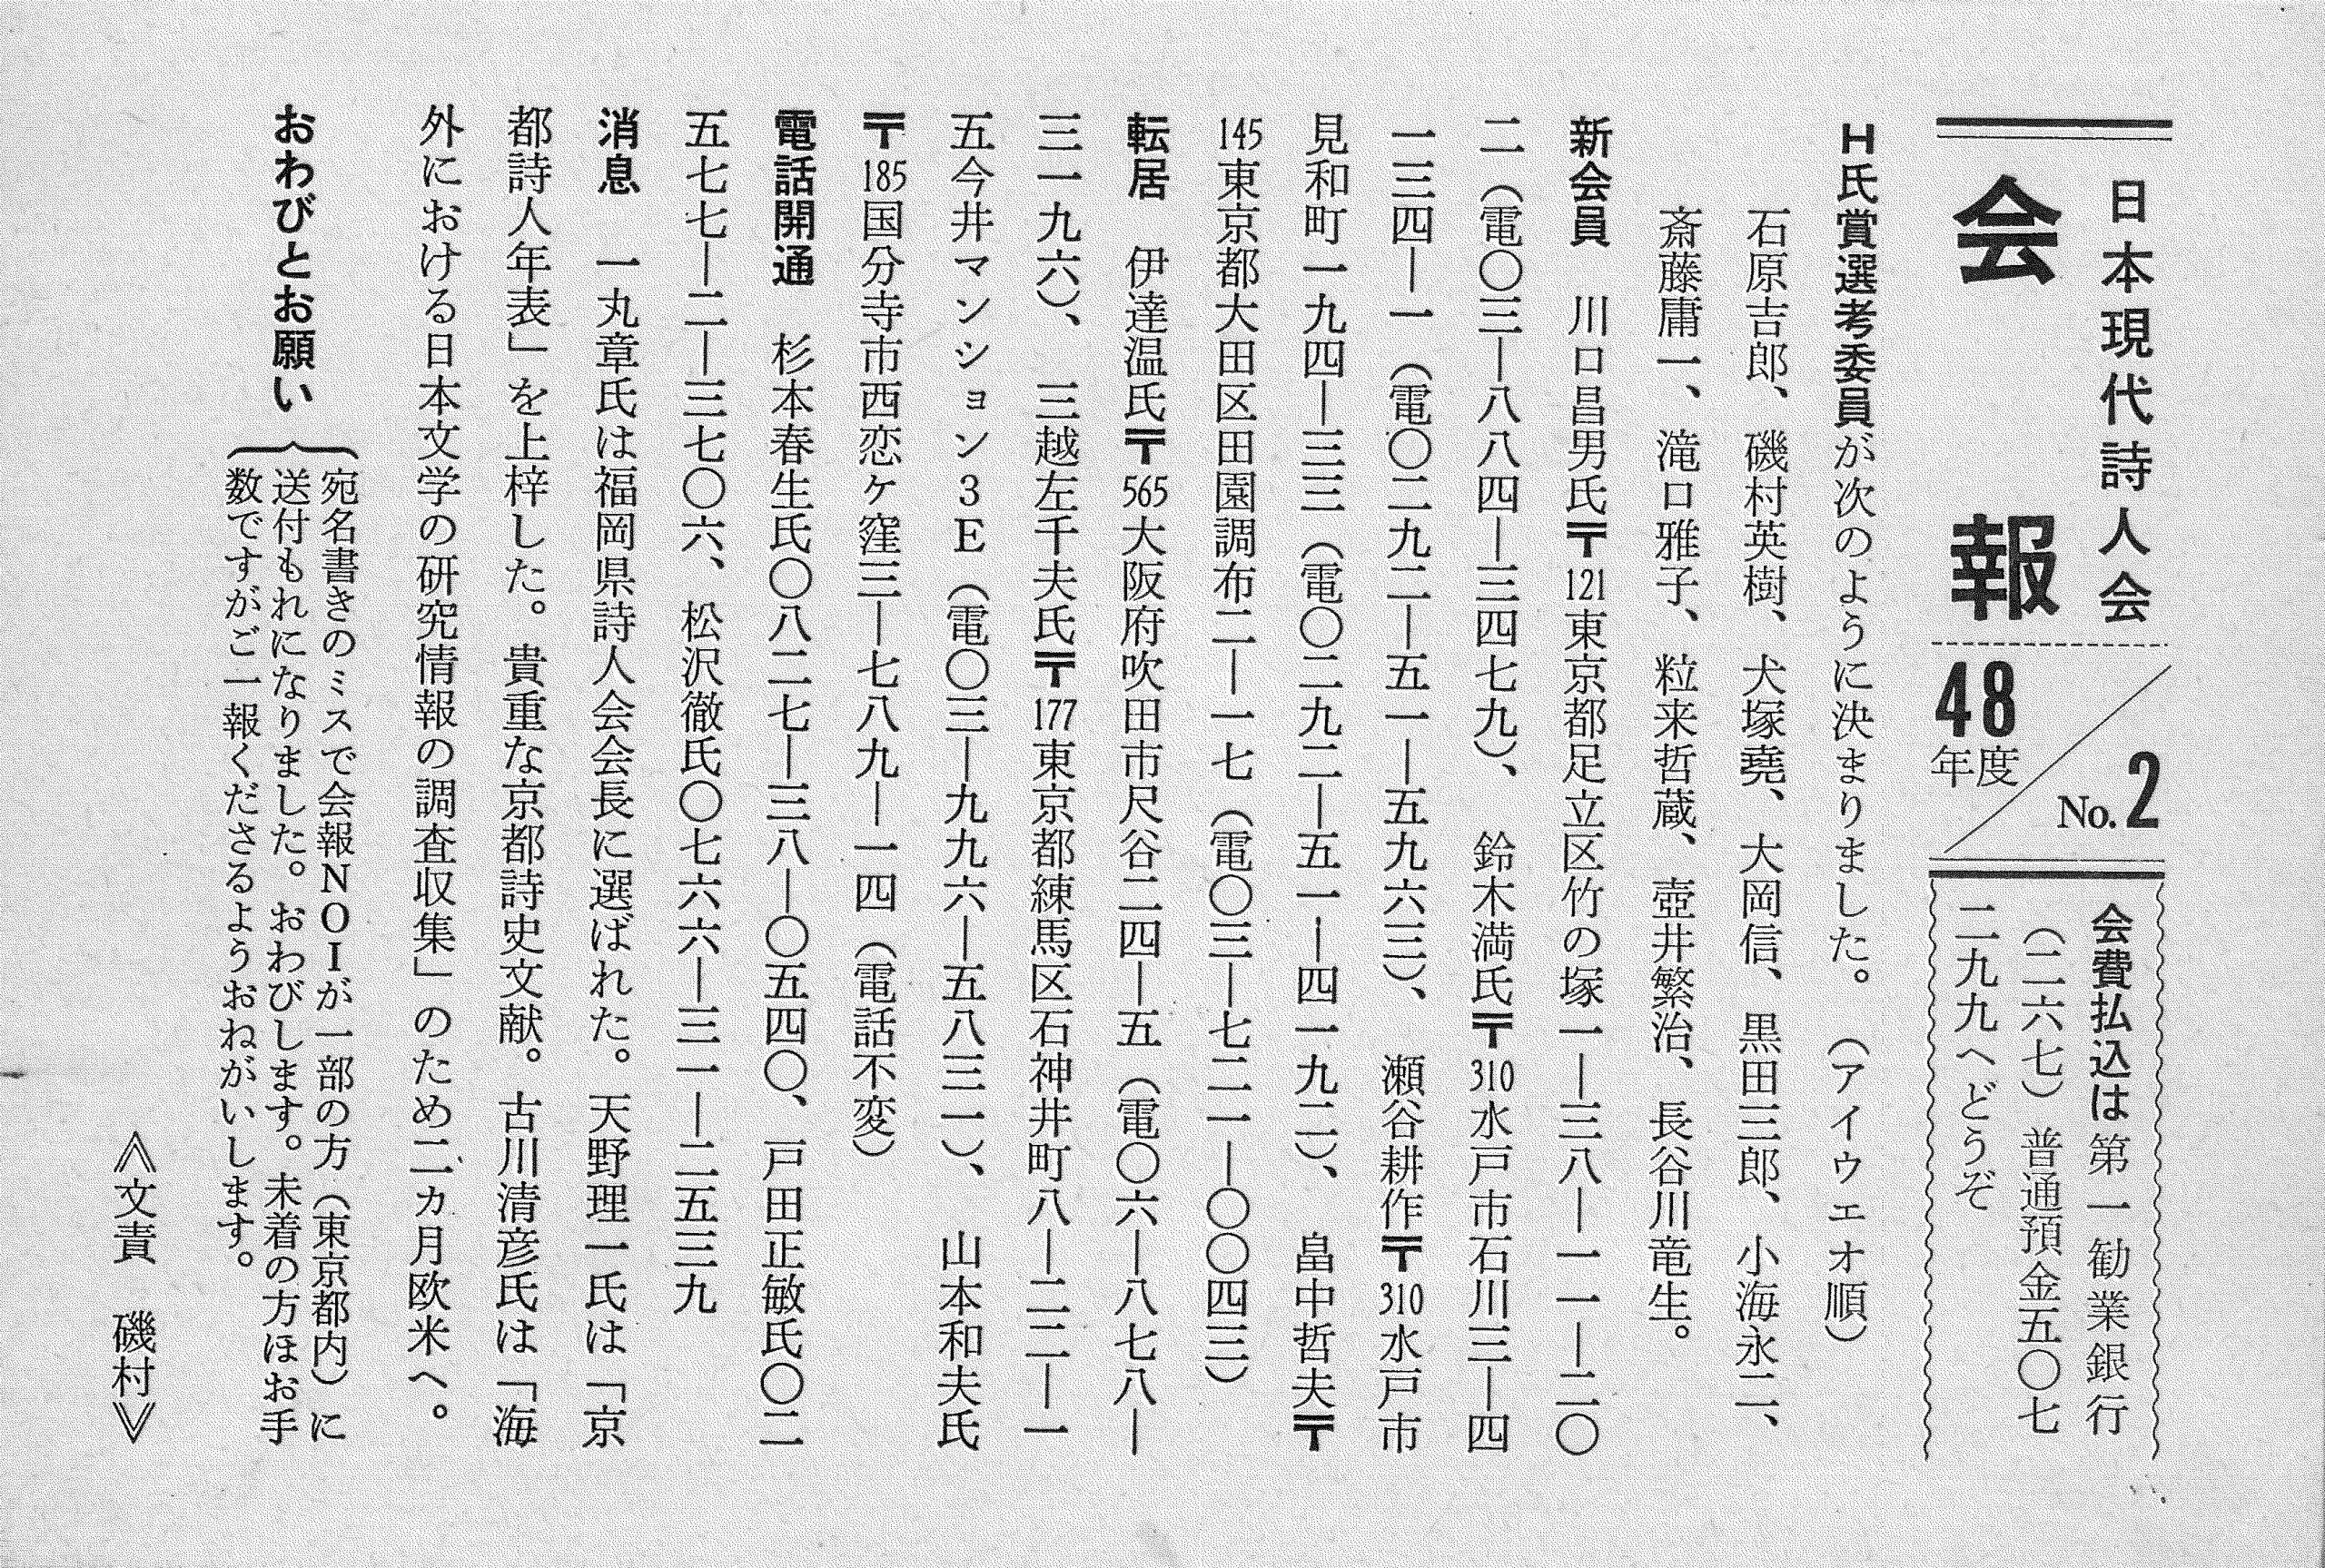 日本現代詩人会
会報
48年度
No.2
会費払込は第一勧業銀行
（二六七）普通預金五〇七
二九九へどうぞ
H氏賞選考委員が次のように決まりました。（アイウエオ順）
石原吉郎、磯村英樹、犬塚堯、大岡信、黒田三郎、小海永二、
斎藤庸一、滝口雅子、粒来哲蔵、壺井繁治、長谷川竜生。
新会員　川口昌男氏〒121東京都足立区竹の塚一―三八―一一―二〇
二（電〇三―八八四―三四七九）、鈴木満氏〒310水戸市石川三―四
一三四―一（電〇二九二―五一―五九六三）、瀬谷耕作〒310水戸市
見和町一九四―三三（電〇二九二―五一―四一九二）、畠中哲夫〒
145東京都大田区田園調布二―一七（電〇三―七二一―〇〇四三）
転居　伊達温氏〒565大阪府吹田市尺谷二四―五（電〇六―八七八―
三一九六）、三越左千夫氏〒177東京都練馬区石神井町八―二二―一
五今井マンション3E（電〇三―九九六―五八三一）、山本和夫氏
〒185国分寺市西恋ケ窪三―七八九―一四（電話不変）
電話開通　杉本春生氏〇八二七―三八―〇五四〇、戸田正敏氏〇二
五七七―二―三七〇六、松沢徹氏〇七六六―三一―二五三九
消息　一丸章氏は福岡県詩人会会長に選ばれた。天野理一氏は「京
都詩人年表」を上梓した。貴重な京都詩史文献。古川清彦氏は「海
外における日本文学の研究情報の調査収集」のため二カ月欧米へ。
おわびとお願い
宛名書きのミスで会報NOIが一部の方（東京都内）に
送付もれになりました。おわびします。未着の方ほお手
数ですがご一報くださるようおねがいします。
《文責　磯村》